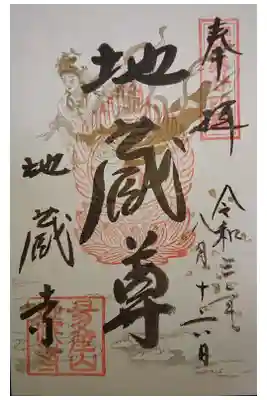 奉拝
令和三年 月十六日
地蔵尊
地蔵寺